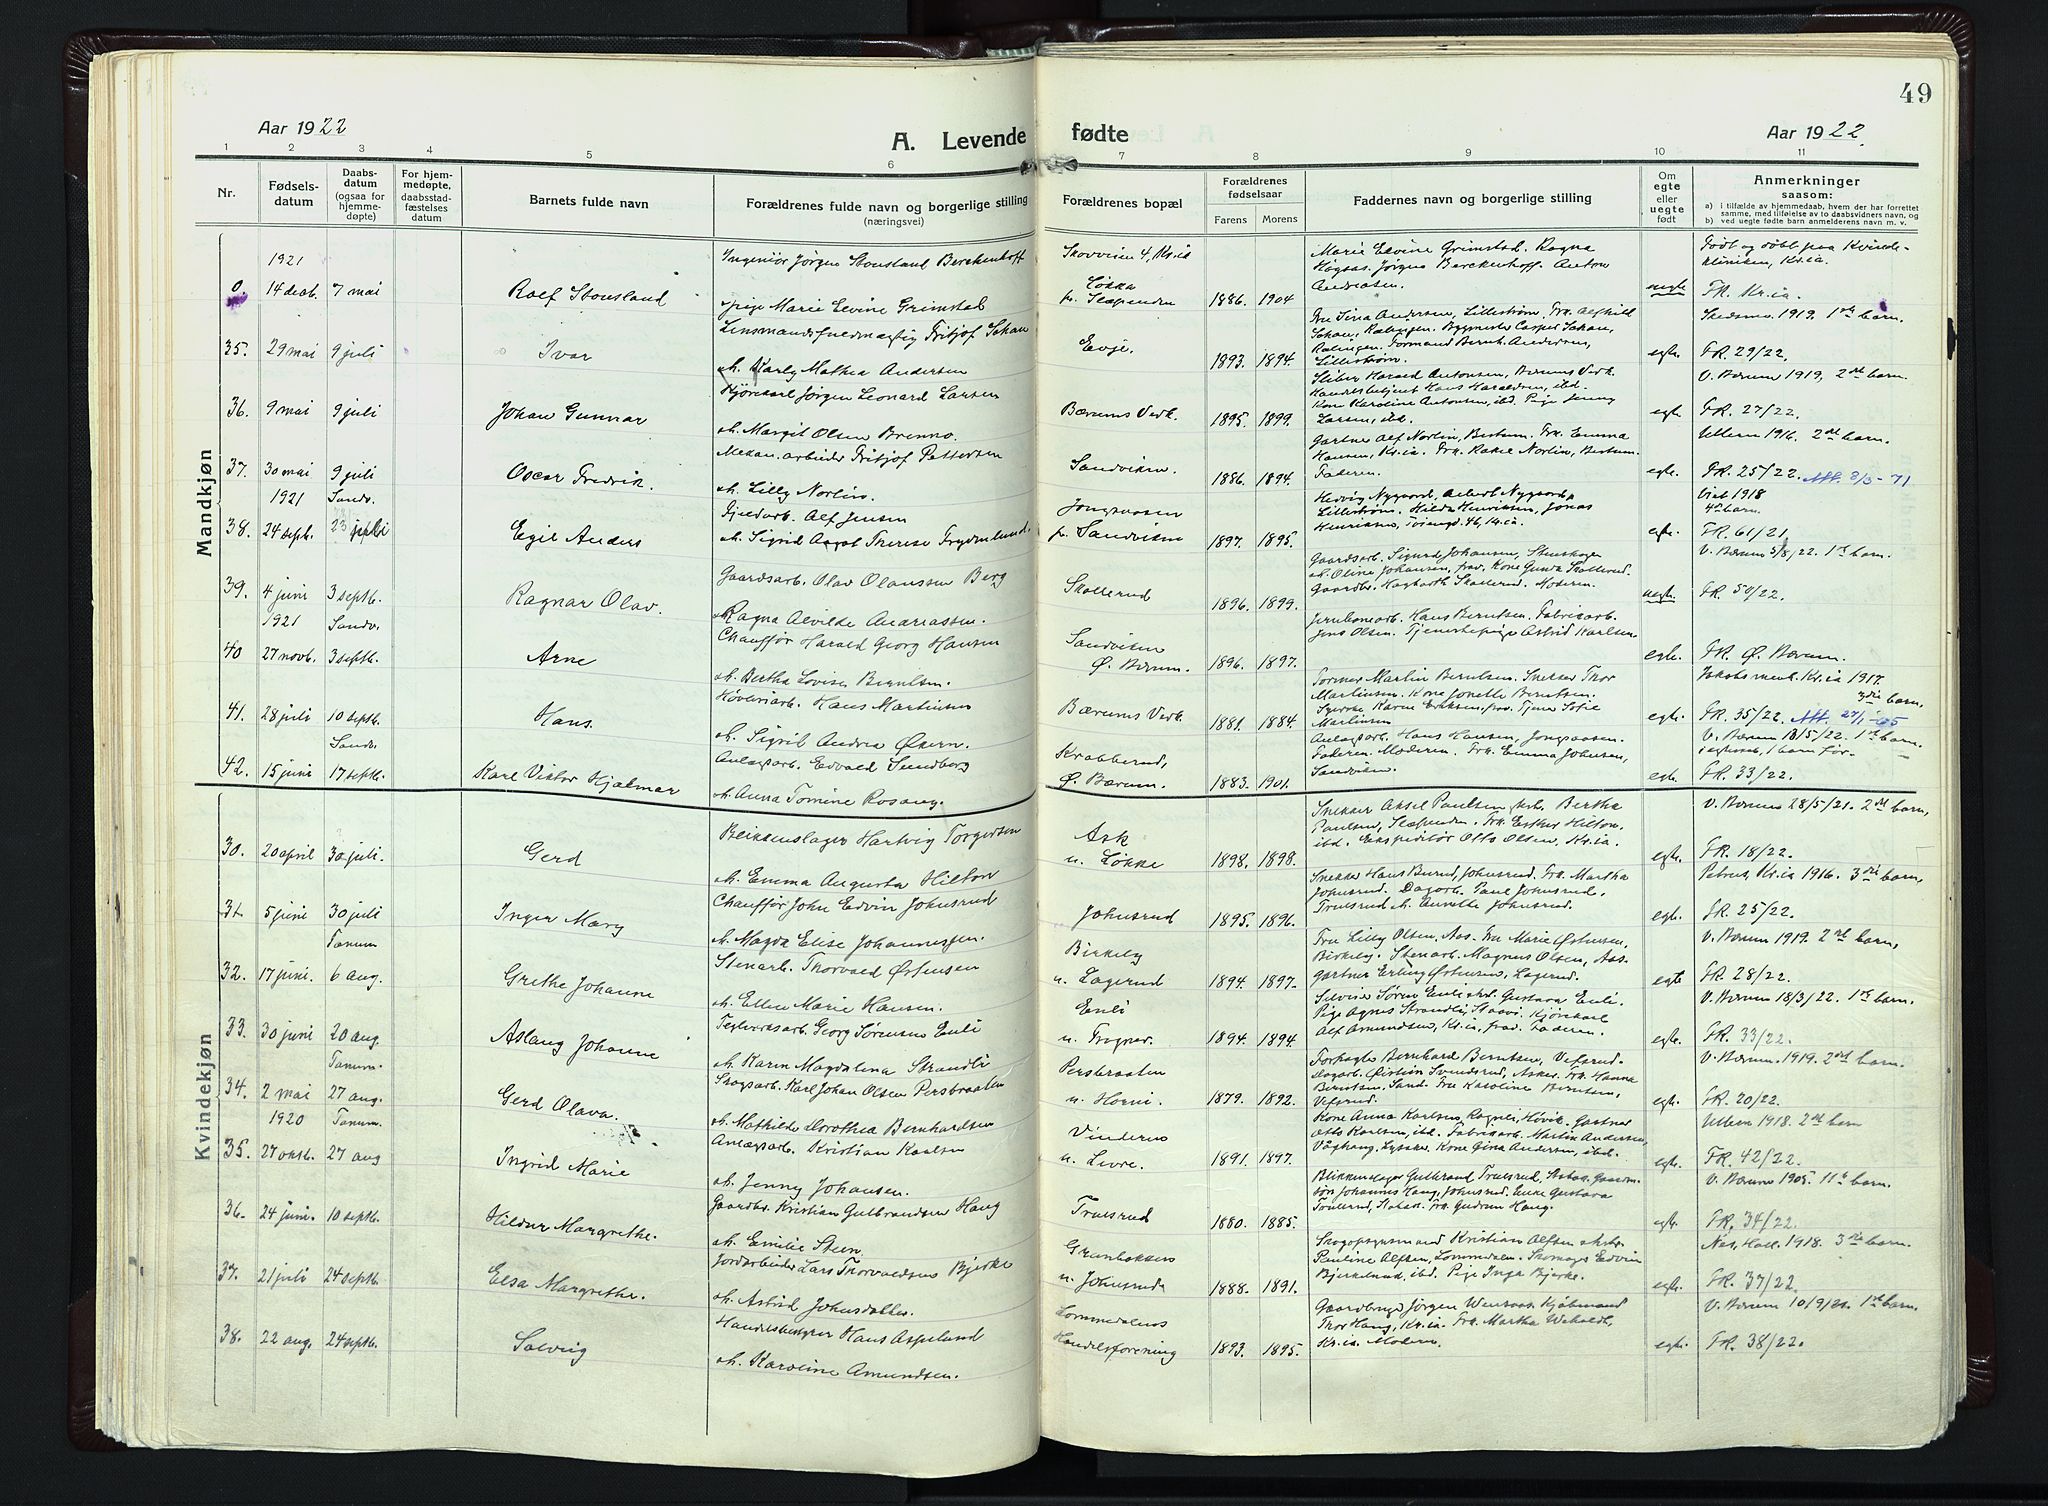 49
Aar 1922
A. Levende fødte
Aar 1922.
1 2 3 4 5 6 7 8 9 10 11
Nr.
Fødsels-
datum
Daabs-
datum
(ogsaa for
hjemme-
døpte)
For hjem-
medøpte,
daabsstad-
fæstelses
datum
Barnets fulde navn
Forældrenes fulde navn og borgerlige stilling
(næringsvei)
Forældrenes bopæl
Forældrenes
fødselsaar
Farens Morens
Faddernes navn og borgerlige stilling
Om
egte
eller
uegte
født
Anmerkninger
saasom:
a) i tilfælde av hjemmedaab, hvem der har forrettet
samme, med tilføielse av to daabsvidners navn, og
b) ved uegte fødte barn anmelderens navn m. v.
Mandkjøn
1921 Ingeniør Jørgen Stousland Berckenhoff Skovveien 4, Kr.ia Marie Elvine Grimstad. Ragna Født og døbt paa Kvinde-
Høgsas. Jørgen Berckenhoff. Anton kliniken, Kr.ia.
0. 14 decb. 7 mai Rolf Stousland pige Marie Elvine Grimstad Løkka p. Slependen 1886. 1904 Andreasen. uegte FR. Kr.ia.
Lensmandsfuldmægtig Fritjof Johan Fru Lina Andersen, Lillestrøm, Frk. Skedsmo 1919. 1ste barn.
35. 29 mai 9 juli Ivar m. Karly Mathea Andersen Evje. 1893. 1894. Lillestrøm. egte. FR. 29/22.
Kjørekarl Jørgen Leonard Larsen Harald Antonsen, Bærums Verk. V. Bærum 1919, 2det barn.
36. 9 mai 9 juli Johan Gunnar m. Margit Olsen Brenno. Bærums Verk. 1895. 1899. Kone Karoline Antonsen, ibd. Pige Jenny Larsen, ibd. egte. FR. 27/22.
Mekan. arbeider Fritjof Pettersen Gartner Alf Norlin, Bestum. Frk. Emma Ullern 1916. 2det barn.
37. 30 mai 9 juli Oscar Fredrik. m. Lilly Norlin. Sandviken. 1886. 1894. Hansen, Kr.ia. Frk. Rakel Norlin, Bestum. Faderen. egte. FR. 25/22.
1921 Sandv. Alf Jensen Jongsaasen Hedvig Nygaard, Albert Nygaard, Viet 1918
4de barn.
38. 24 septb. 23 juli Egil Anders m. Sigrid Therese Frydenlund. p. Sandviken 1897. 1895. Lillestrøm. Hilda Henriksen, Jonas Henriksen, Tøiengt. 46, Kr.ia. egte. FR. 61/21.
Gaardsarb. Olav Olaussen Berg Gaardsarb. Sigurd Johansen, V. Bærum 5/8/22. 1ste barn.
39. 4 juni 3 septb. Ragnar Olav. Ragna Alvilde Andreassen. Skollerud 1896. 1899. m. Oline Johansen, Kone Gunda Skollerud. Gaardbr. Hagbarth Skollerud. Moderen. uegte. FR. 50/22.
1921 Sandv. Chauffør Harald Georg Hansen Sandviken Jernbanearb. Hans Berntsen. Fabrikarb.
40 27 novb. 3 septb. Arne m. Bertha Lovise Berntsen. Ø. Bærum. 1896. 1897. Jens Olsen. Tjenestepige Astrid Karlsen. egte. FR. Ø. Bærum.
Høvleriarb. Hans Martinsen Former Martin Berntsen. Snekker Thor Jakobs menh. Kr.ia 1917.
3die barn,
41. 28 juli 10 septb. Hans. m. Sigrid Andrea Økern. Bærums Verk. 1881. 1884. Martinsen. Kone Jonette Berntsen. Karen Eriksen, Martinsen egte. FR. 35/22.
Sandv. Anlægsarb. Edvald Sundberg Krabberud, Anlægsarb. Hans Hansen, Jongsaasen. V. Bærum 13/5/22. 1ste barn.
42. 15 juni 17 septb. Karl Viktor Hjalmar m. Anna Tomine Rosang. Ø. Bærum. 1883. 1901. Faderen. Moderen. Frk. Emma Johnsen, Sandviken. egte. FR. 33/22.
Kvindekjøn
Blikkenslager Hartvig Torgersen Ask Snekker Aksel Paulsen Bertha V. Bærum 28/5/21. 2det barn,
30. 20 april 30 juli. Gerd m. Emma Augusta Hilton u. Løkke 1898. 1898. Paulsen, Slependen. Frk. Esther Hilton. ibd. Ekspeditør Otto Olsen, Kr.ia. egte. FR. 18/22.
Chauffør John Edvin Johnsrud Snekker Hans Burud, Johnsrud. Frk. Martha Petrus, Kr.ia 1916. 3die barn,
31 5 juni 30 juli Inger Mary m. Magda Elise Johannessen. Johnsrud 1895. 1896. Johnsrud. Dagarb. Paul Johnsrud, Truesrud m. Johnsrud. egte. FR. 25/22.
Tanum Stenarb. Thorvald Østensen Birkeby Fru Lilly Olsen, Aas. Fru Marie Østensen, V. Bærum 1919. 2det barn,
32. 17 juni. 6 aug. Grethe Johanne m. Ellen Marie Hansen. u. Lagerud 1894. 1897. Birkeby. Stenarb. Magnus Olsen, Aas. Gartner Erling Østensen, Lagerud. egte FR. 28/22.
Teglverksarb. Georg Sørensen Enli Enli Søren Enli Gustava Enli. V. Bærum 18/3/22. 1ste barn.
33. 30 juni 20 aug. Aslaug Johanne m. Karen Magdalena Strandli u. Tognæs. 1894. 1894. Pige Agnes Strandli, Kjørekarl Alf Amundsen, Kr.ia, Faderen. egte. FR. 33/22.
Tanum. Skogsarb. Karl Johan Olsen Persbraaten Persbraaten Bernhard Berntsen, V. Bærum. 1919. 2det barn.
34. 2 mai 27 aug. Gerd Olava. m. Mathilde Dorothea Bernhardsen u. Horni. 1879. 1892. Dagarb. Øistein Svendsrud, Asker. Frk. Hanna Berntsen. Sand. Fru Karoline Berntsen, egte. FR. 20/22.
1920 Tanum. Anlægsarb. Kristian Karlsen Vinderen Kone Anna Karlsen, Ragnli, Høvik. Gartner Ullern 1918. 2det barn
35. 27 oktb. 27 aug Ingrid Marie m. Jenny Johansen. u. Levre. 1891. 1897. Otto Karlsen, ibd. Fabrikarb. Martin Andersen, Lysaker. Kone Gina Andersen, ibd. egte. FR. 42/22.
Gaardbr. Kristian Gulbrandsen Haug Blikkenslager Gulbrand Truesrud, V. Bærum 1905. 11te barn.
36. 24 juni. 10 septb. Hildur Margrethe. m. Emilie Steen. Truesrud 1880. 1885. Johannes Haug, Johnsrud. Enke Gustava Truesrud, Frk. Gudrun Haug. egte. FR. 34/22.
Jordarbeider Lars Thorvaldsens Bjerke Granbakken Skogopsynsmand Kristian Alfsen Nes, Hall. 1918. 3die barn.
37. 21 juli 24 septb. Elsa Margrethe. m. Astrid Johnsdatter. u. Johnsrud 1888. 1891. Pauline Alfsen, Lommedalen. Skomager Edvin Bjerkelund, ibd. Pige Inga Bjerke. egte. FR. 37/22.
Handelsbestyrer Hans Aspelund Lommedalens Gaardbruger Jørgen Kjøbmand V. Bærum 10/9/21. 1ste barn.
38. 22 aug. 24 septb. Solveig m. Karoline Amundsen. Handelsforening 1893. 1895. Thor Haug, Kr.ia. Frk. Martha Kr.ia. Moderen. egte. FR. 38/22.